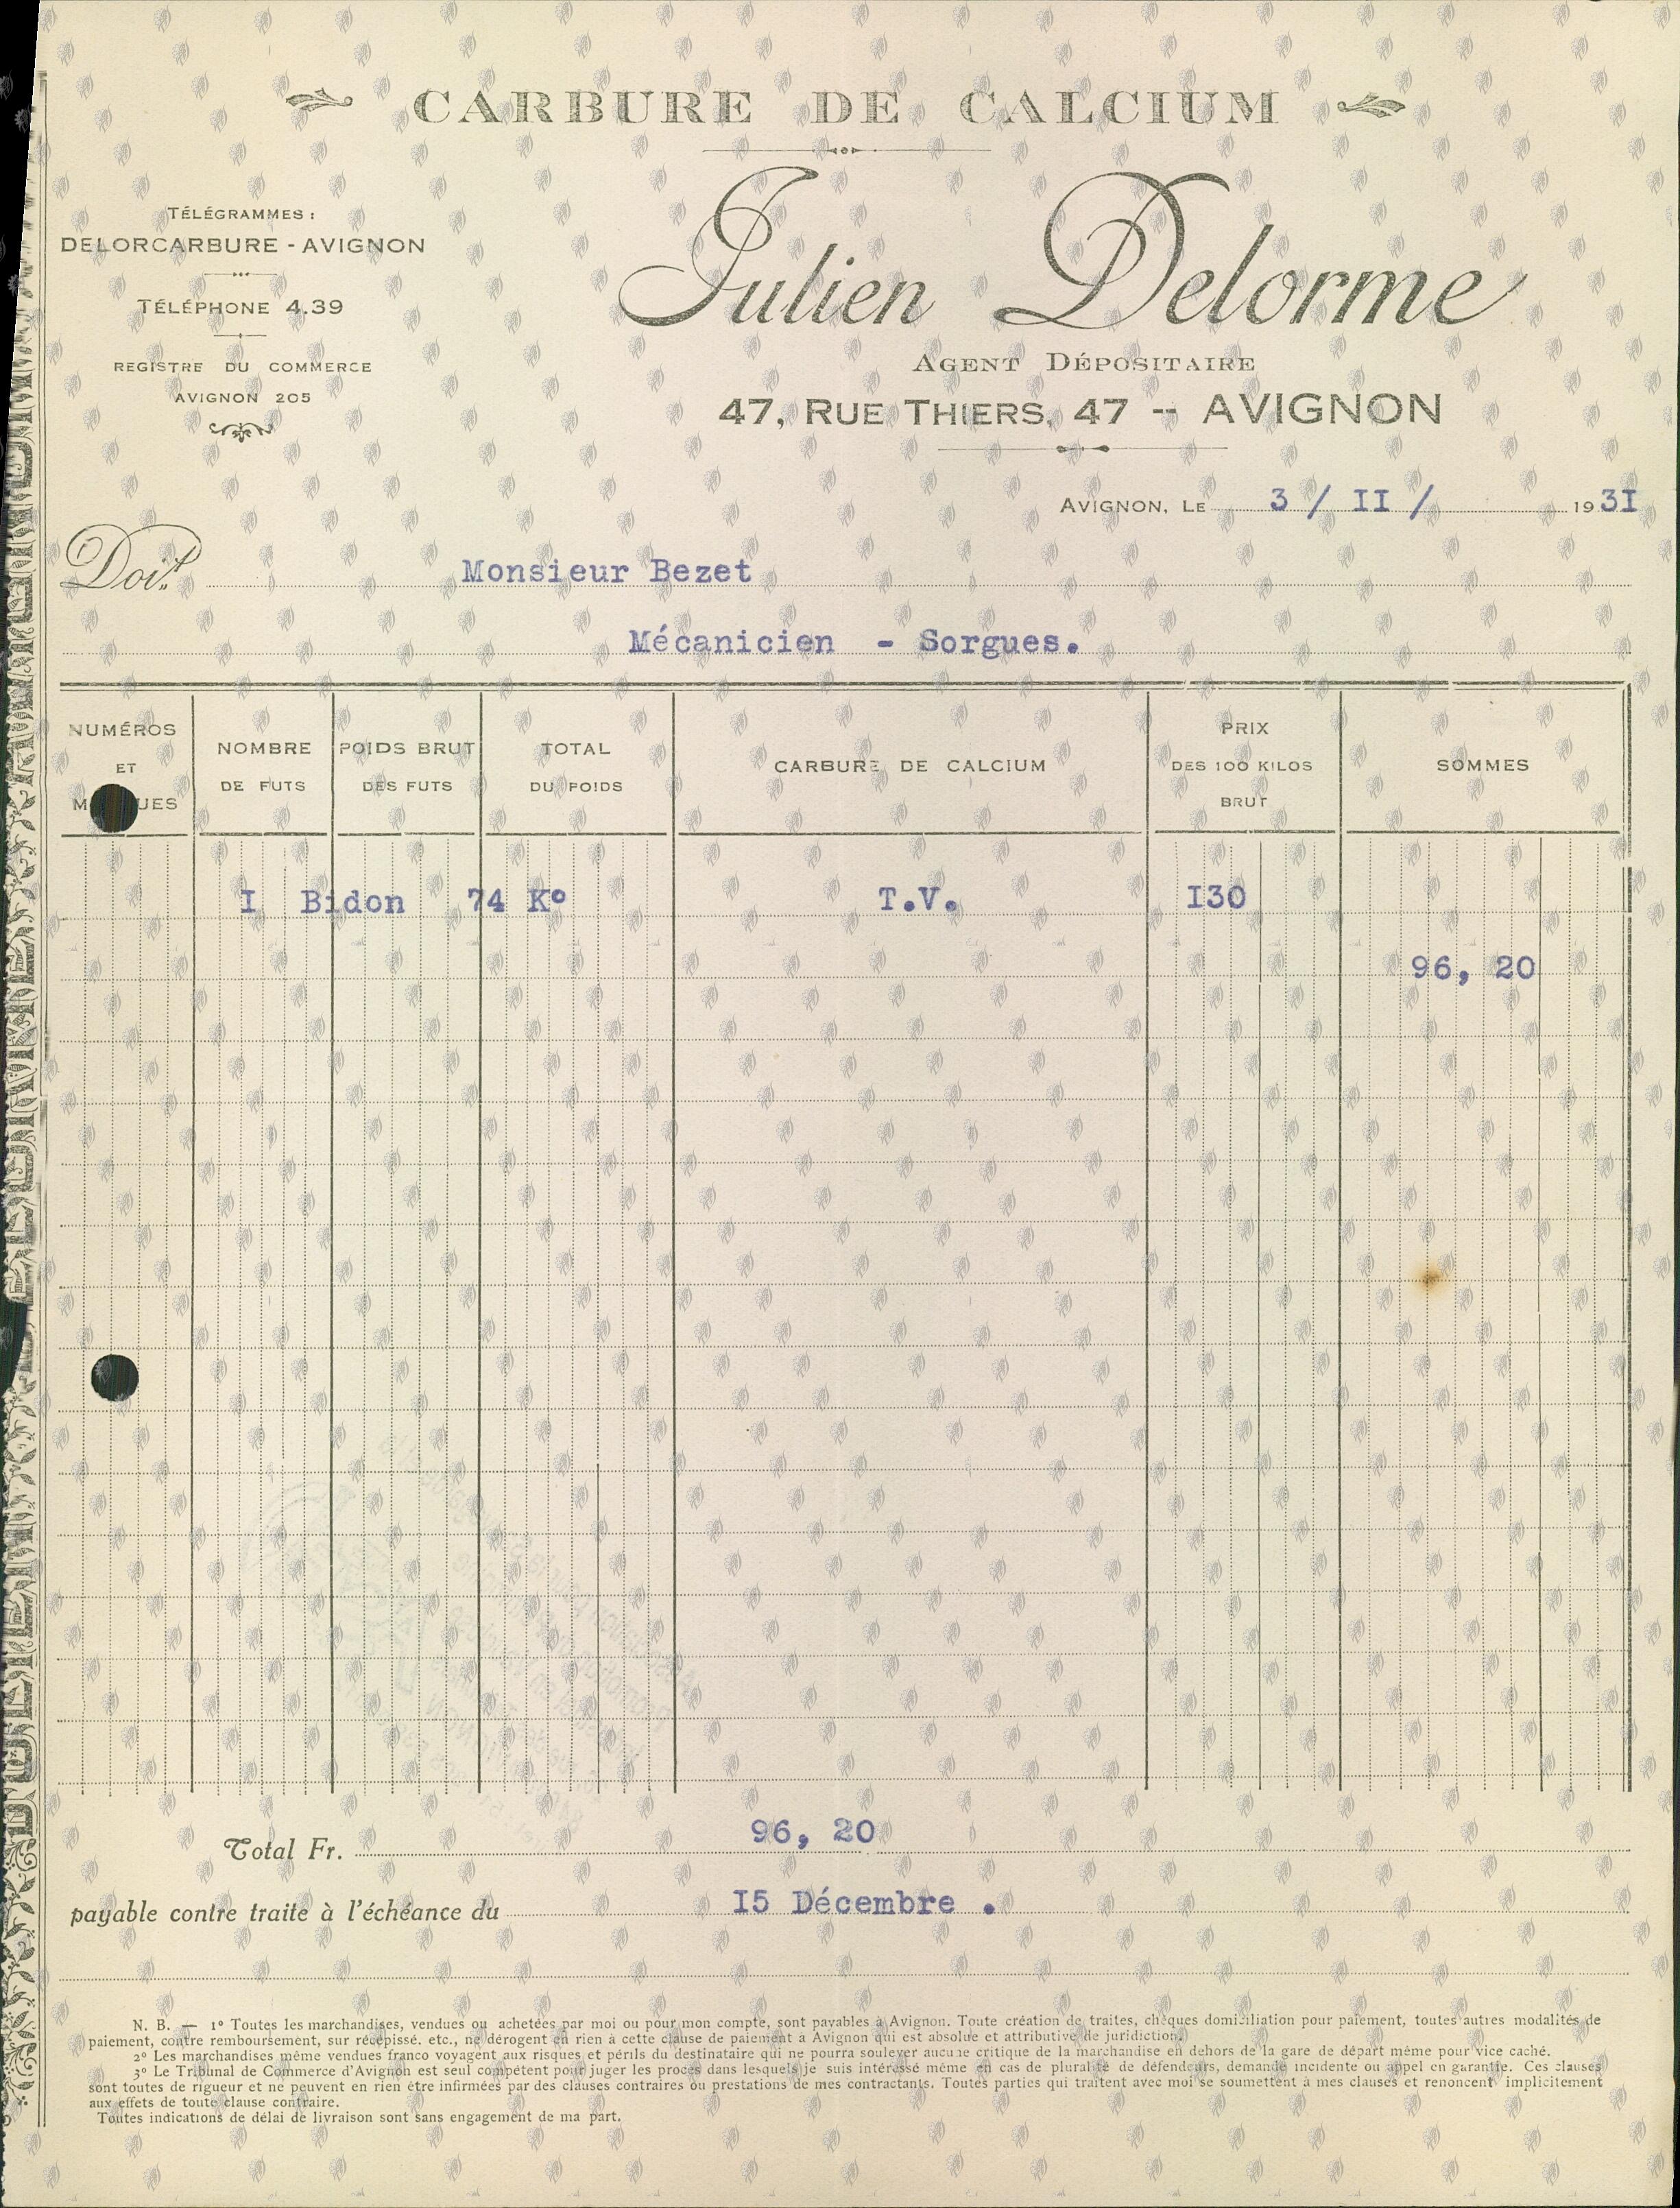 CARBURE DE CALCIUM
TÉLÉGRAMMES :
DELORCARBURE - AVIGNON
TÉLÉPHONE 4.39
REGISTRE DU COMMERCE
AVIGNON 205
Julien Delorme
AGENT DÉPOSITAIRE
47, RUE THIERS, 47 -- AVIGNON
AVIGNON, LE 3 / II / 1931
Doit
Monsieur Bezet
Mécanicien - Sorgues.
NUMÉROS ET M UES
NOMBRE DE FUTS
POIDS BRUT DES FUTS
TOTAL DU POIDS
CARBURE DE CALCIUM
PRIX DES 100 KILOS BRUT
SOMMES
I Bidon 74 K° T.V. I30
96, 20
Total Fr. 96, 20
payable contre traite à l'échéance du I5 Décembre .
N. B. — 1° Toutes les marchandises, vendues ou achetées par moi ou pour mon compte, sont payables à Avignon. Toute création de traites, chèques domiciliation pour paiement, toutes autres modalités de
paiement, contre remboursement, sur récépissé. etc., ne dérogent en rien à cette clause de paiement à Avignon qui est absolue et attributive de juridiction.
2° Les marchandises même vendues franco voyagent aux risques et périls du destinataire qui ne pourra soulever aucune critique de la marchandise en dehors de la gare de départ même pour vice caché.
3° Le Tribunal de Commerce d'Avignon est seul compétent pour juger les procès dans lesquels je suis intéressé même en cas de pluralité de défendeurs, demande incidente ou appel en garantie. Ces clauses
sont toutes de rigueur et ne peuvent en rien être infirmées par des clauses contraires ou prestations de mes contractants. Toutes parties qui traitent avec moi se soumettent à mes clauses et renoncent implicitement
aux effets de toute clause contraire.
Toutes indications de délai de livraison sont sans engagement de ma part.